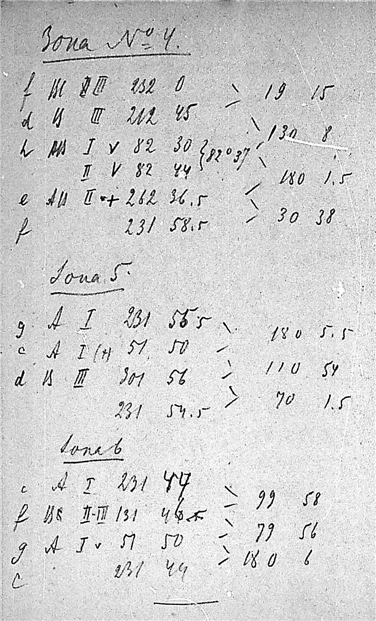 Зона № 4.
f III 232 0 19 15
d B III 212 45
h I v 82 30 130 8
II v 82 44 82° 37 180 1.5
e AB II + 262 36.5 30 38
f 231 58.5
Зона 5.
g A I 231 55.5 180 5.5
c A I (+) 51 50 110 54
d B III 301 56 70 1.5
231 54.5
Зона 6
c A I 231 47 99 58
f II-III 131 79 56
g A I v 51 50 180 6
c 231 44